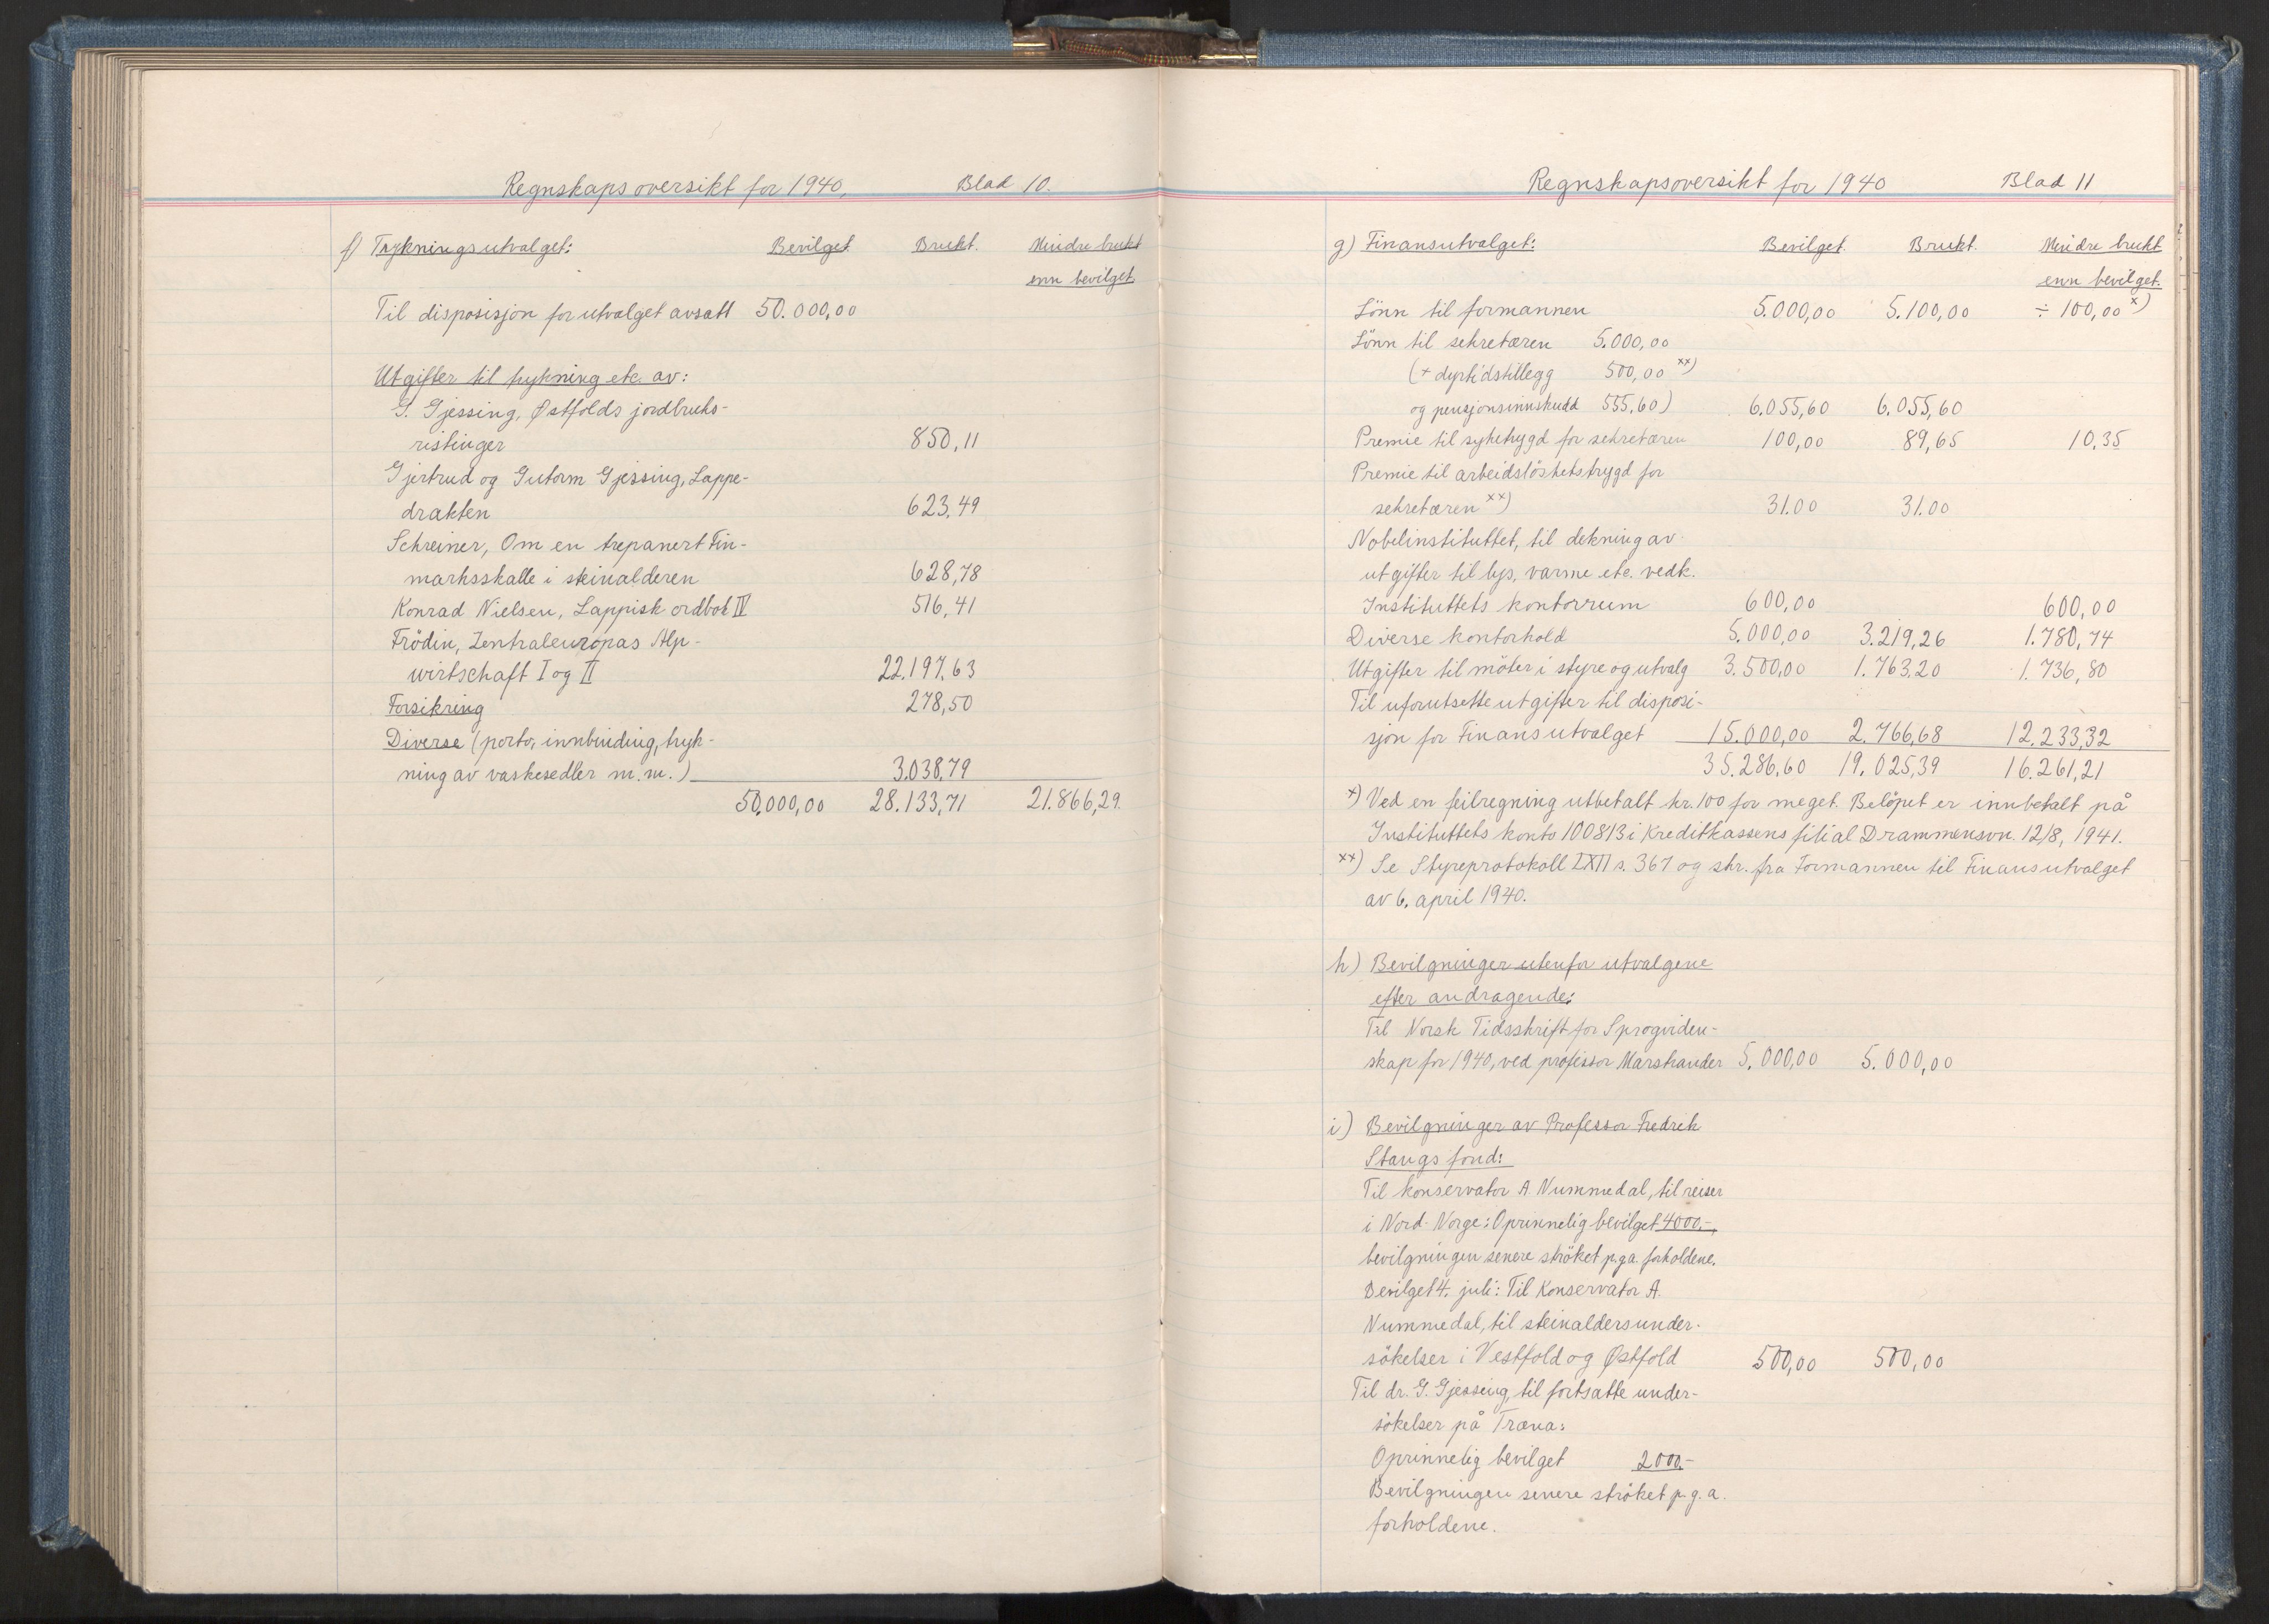 Regnskapsoversikt for 1940, Blad 10.
f) Trykningsutvalget: Bevilget Brukt. Mindre brukt
enn bevilget.
Til disposisjon for utvalget avsatt 50.000,00
Utgifter til trykning etc. av:
G. Gjessing, Østfolds jordbruks-
ristinger 850,11
Gjertrud og Gutorm Gjessing, Lappe-
drakten 623,49
Schreiner, Om en trepanert Fin-
marksskalle i steinalderen 628,78
Konrad Nielsen, Lappisk ordbok IV 516,41
Frödin, Zentraleuropas Alp-
wirtschaft I og II 22.197,63
Forsikring 278,50
Diverse (porto, innbinding, tryk-
ning av vaskesedler m.m.) 3.038,79
50.000,00 28.133,71 21.866,29.
Regnskapsoversikt for 1940 Blad 11
g) Finansutvalget: Bevilget. Brukt. Mindre brukt
enn bevilget.
Lönn til formannen 5.000,00 5.100,00 ÷ 100,00 x)
Lönn til sekretæren 5.000,00
(+ dyrtidstillegg 500,00 xx)
og pensjonsinnskudd 555,60) 6.055,60 6.055,60
Premie til syketrygd for sekretæren 100,00 89,65 10.35
Premie til arbeidslöshetstrygd for
sekretæren xx) 31.00 31.00
Nobelinstituttet, til dekning av
utgifter til lys, varme etc. vedk.
Instituttets kontorrum 600,00 600,00
Diverse kontorhold 5.000,00 3.219,26 1.780,74
Utgifter til möter i styre og utvalg 3.500,00 1.763,20 1.736,80
Til uforutsette utgifter til disposi-
sjon for Finansutvalget 15.000,00 2.766,68 12.233,32
35.286,60 19.025,39 16.261,21
x) Ved en feilregning utbetalt kr. 100 for meget. Belöpet er innbetalt på
Instituttets konto 100813 i Kreditkassens filial Drammensvn. 12/8, 1941.
xx) Se Styreprotokoll LXII s. 367 og skr. fra Formannen til Finansutvalget
av 6. april 1940.
h) Bevilgninger utenfor utvalgene
efter andragende:
Til Norsk Tidsskrift for Sprogviden-
skap for 1940, ved professor Marstrander 5.000,00 5.000,00
i) Bevilgninger av Professor Fredrik
Stangs fond:
Til konservator A. Nummedal, til reiser
i Nord-Norge: Oprinnelig bevilget 4000.-,
bevilgningen senere ströket p.g.a. forholdene.
Bevilget 4. juli: Til Konservator A.
Nummedal, til steinaldersunder-
sökelser i Vestfold og Østfold 500,00 500,00
Til dr. G. Gjessing, til fortsatte under-
sökelser på Træna:
Oprinnelig bevilget 2000.-
Bevilgningen senere ströket p.g.a.
forholdene.